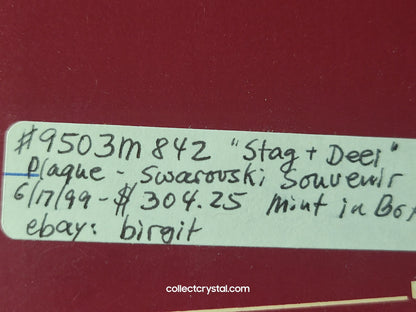 #9503m 842 "Stag + Deer"
Plaque - Swarovski Souvenir
6/17/99 - $304.25 Mint in Box
ebay: birgit
collectcrystal.com